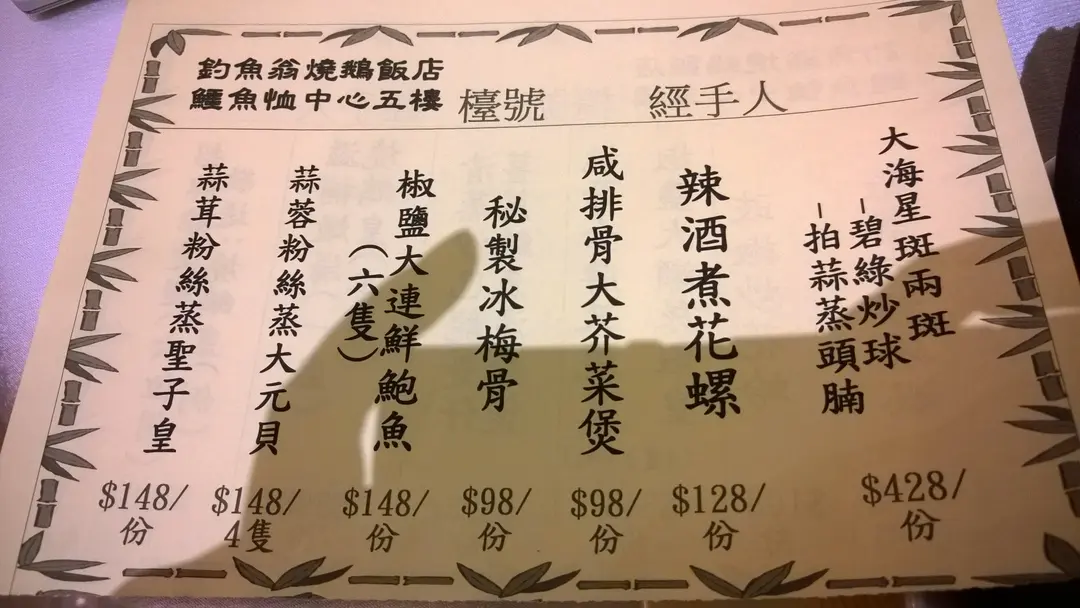 釣魚翁燒鵝飯店
鱷魚恤中心五樓
檯號
經手人
大海星斑兩斑
–碧綠炒球
–拍蒜蒸頭腩
$428/
份
辣酒煮花螺
$128/
份
咸排骨大芥菜煲
$98/
份
秘製冰梅骨
$98/
份
椒鹽大連鮮鮑魚
(六隻)
$148/
份
蒜蓉粉絲蒸大元貝
$148/
4隻
蒜茸粉絲蒸聖子皇
$148/
份